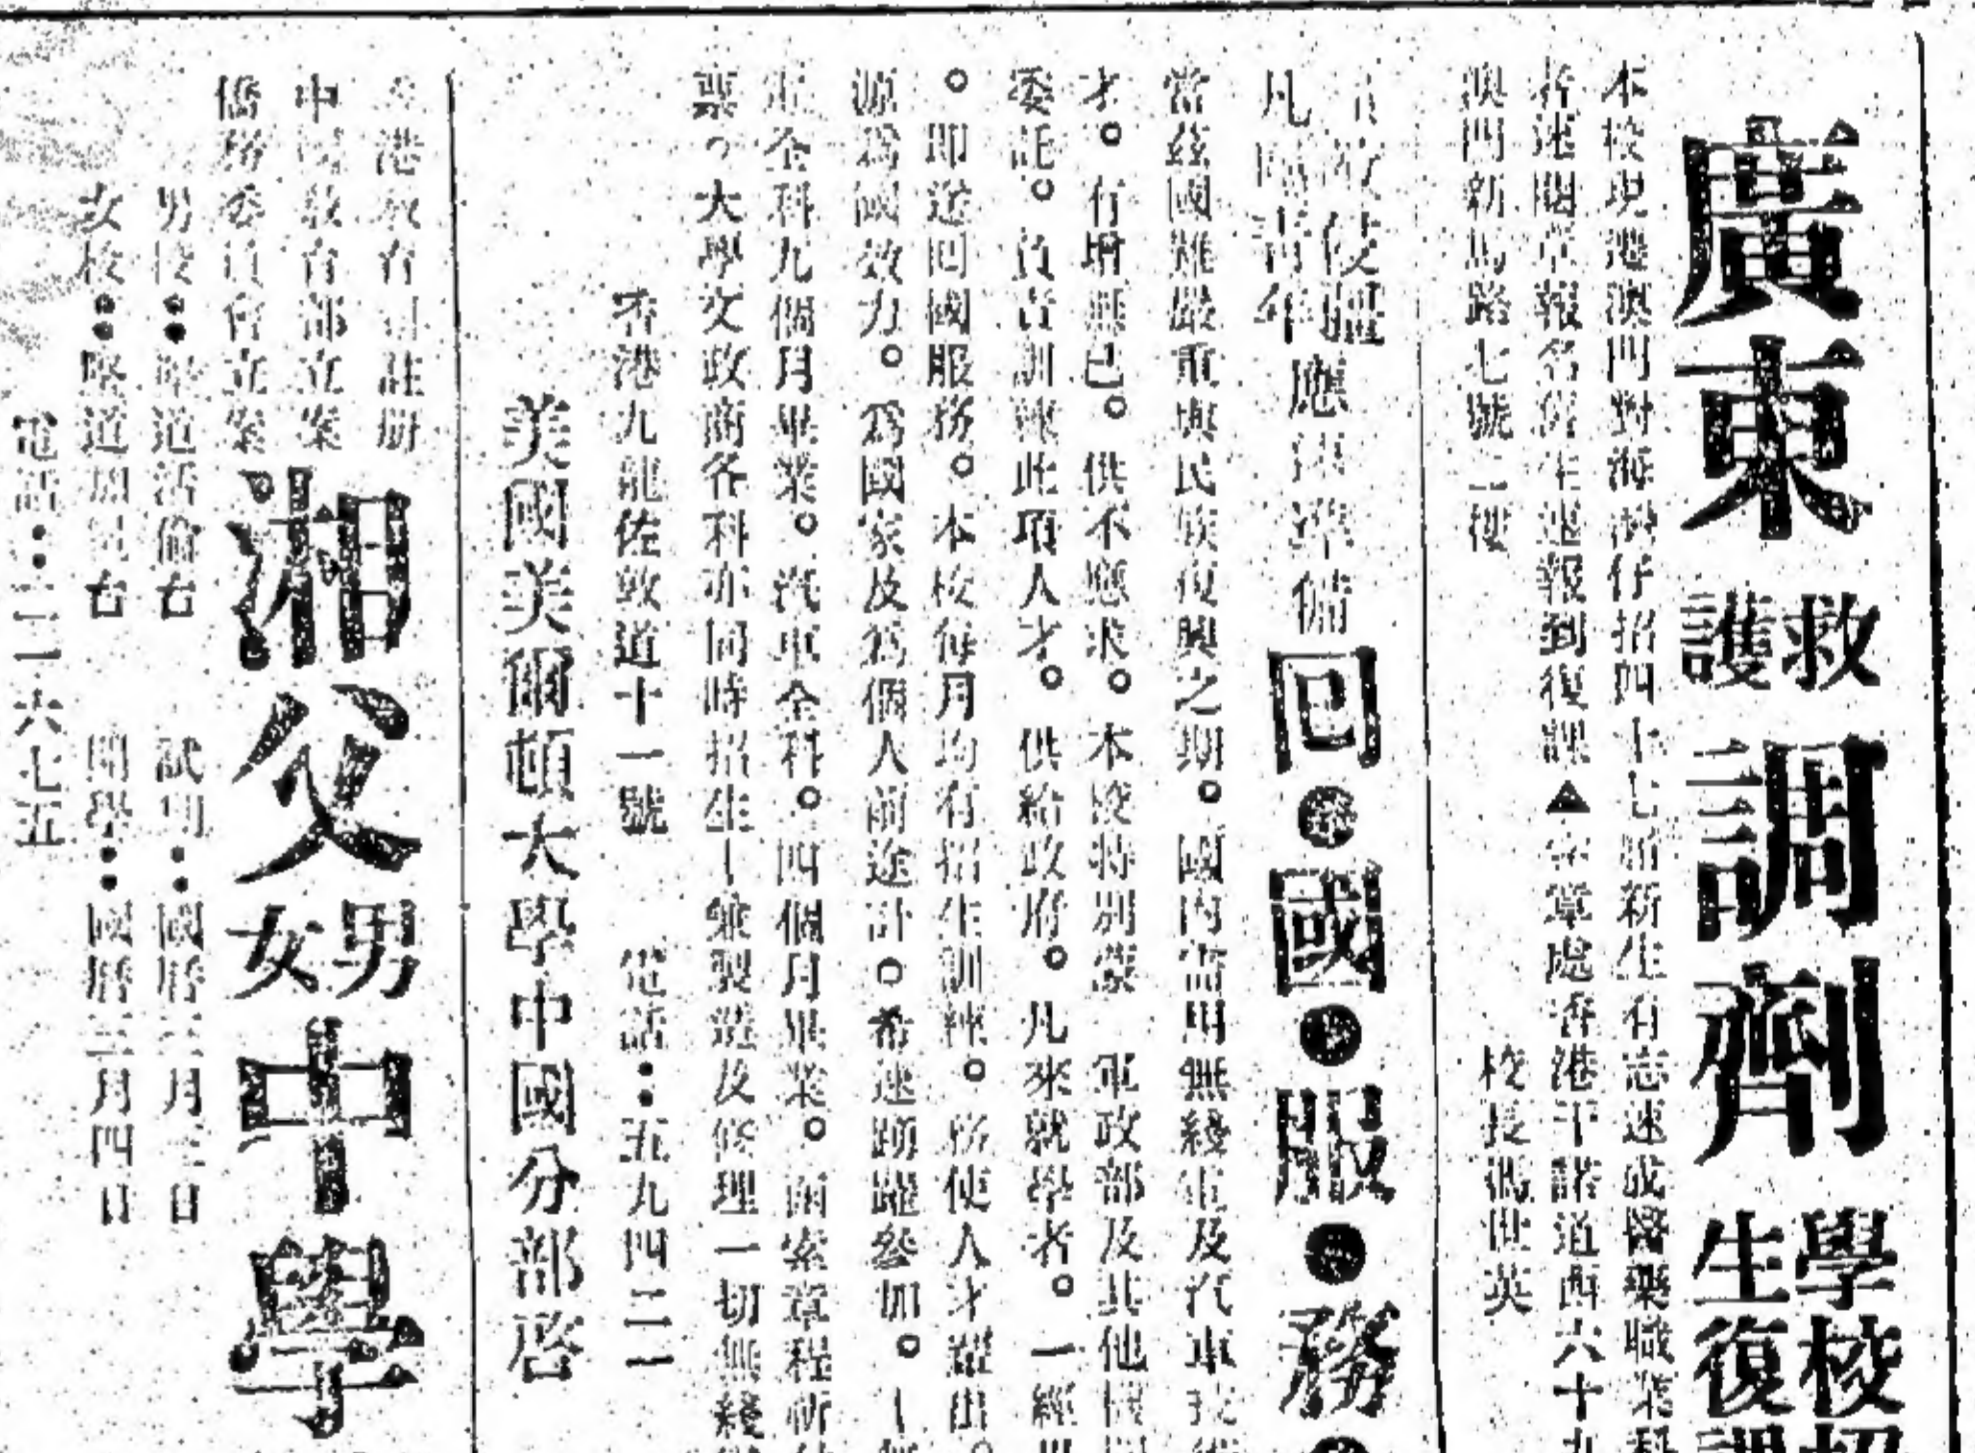 廣東救護調劑學校招生復課
本校現遷澳門對海灣仔招四十七屆新生有志速成醫藥職業科
者速閱章報名舊生速報到復課▲索章處香港干諾道西六十九
澳門新馬路七號二樓 校長馮世英
凡 青年
應 準備
回國服務
當茲國難嚴重與民族復興之期。國內需用無綫電及汽車
才。有增無已。供不應求。本校特別蒙 軍政部及其他
委託。負責訓練此項人才。供給政府。凡來就學者。一經
。即送回國服務。本校每月均有招生訓練。務使人才躍出。
源為國效力。為國家及為個人前途計。希速踴躍參加。
定全科九個月畢業。汽車全科。四個月畢業。函索章程
票。大學文政商各科亦同時招生 兼製造及修理一切無綫
香港九龍佐敦道十一號 電話：五九四二一
美國美爾頓大學中國分部啓
香港教育司註册
中國教育部立案
僑務委員會立案
湘父男女中學
男校：堅道活倫台 試期：國曆 月 日
女校：堅道加 台 開學：國曆三月四日
電話：二一六七五